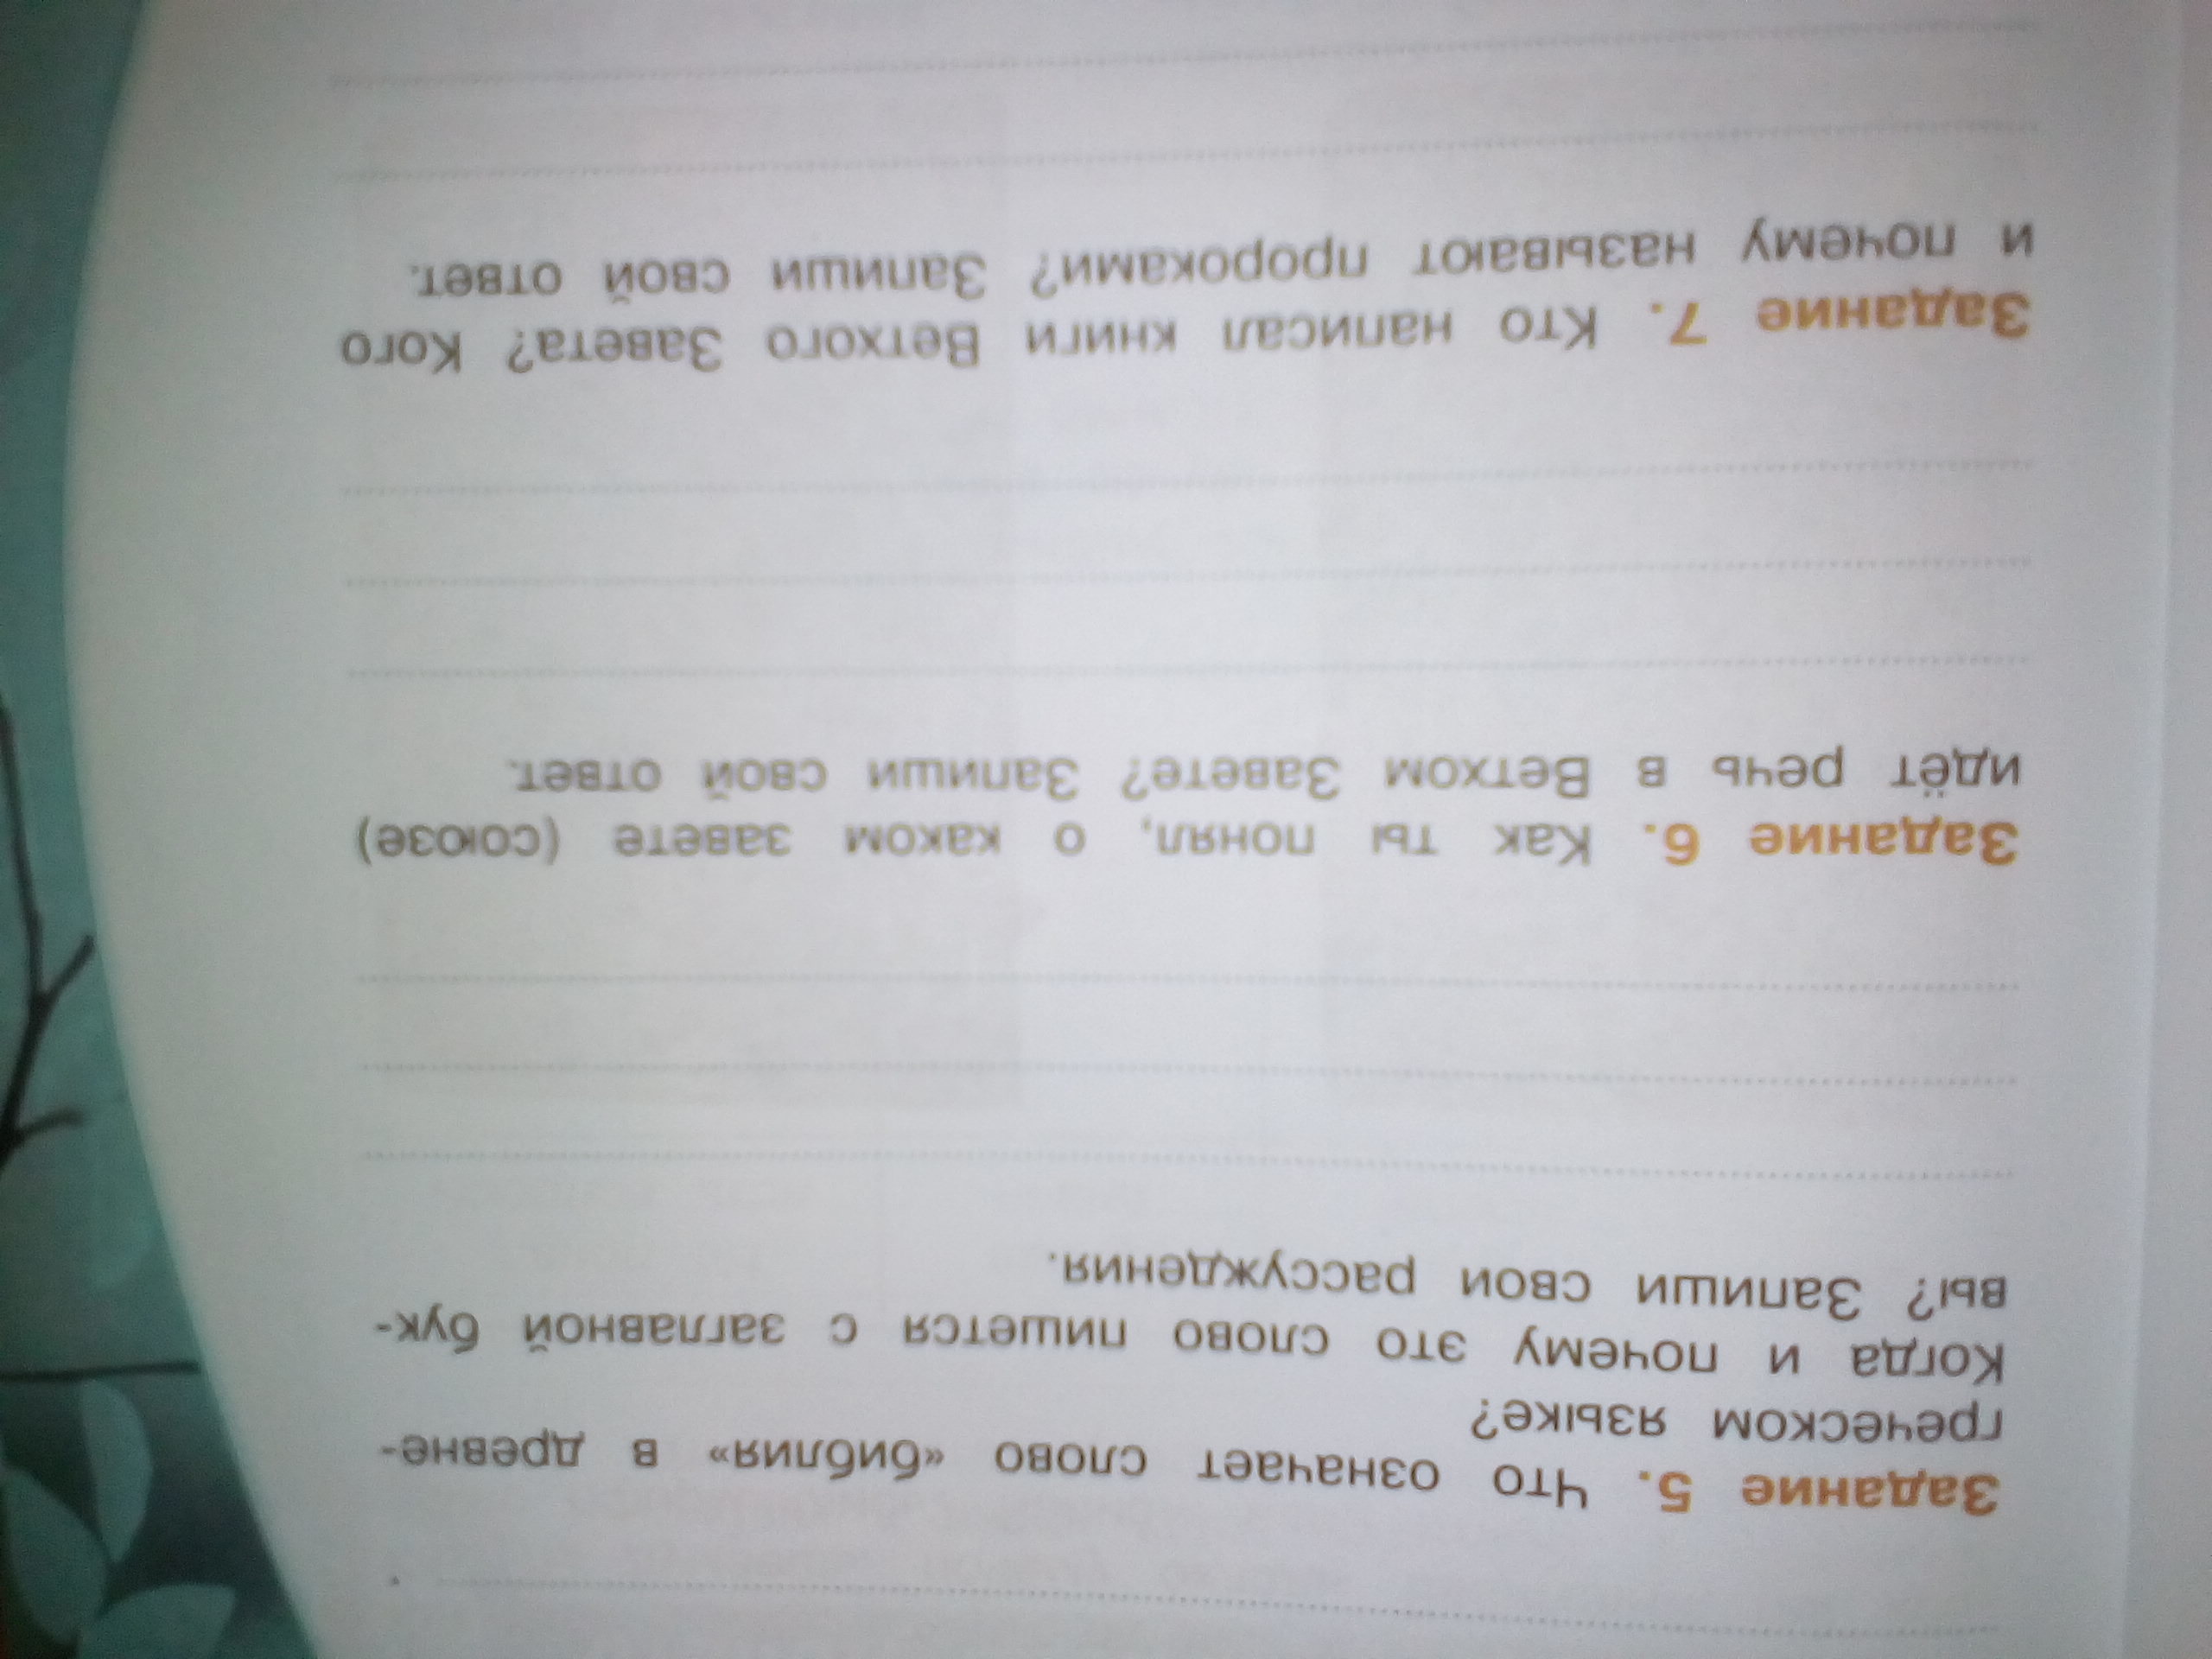 Задание 5. Что означает слово «библия» в древне-
греческом языке?
Когда и почему это слово пишется с заглавной бук-
вы? Запиши свои рассуждения.
Задание 6. Как ты понял, о каком завете (союзе)
идёт речь в Ветхом Завете? Запиши свой ответ.
Задание 7. Кто написал книги Ветхого Завета? Кого
и почему называют пророками? Запиши свой ответ.